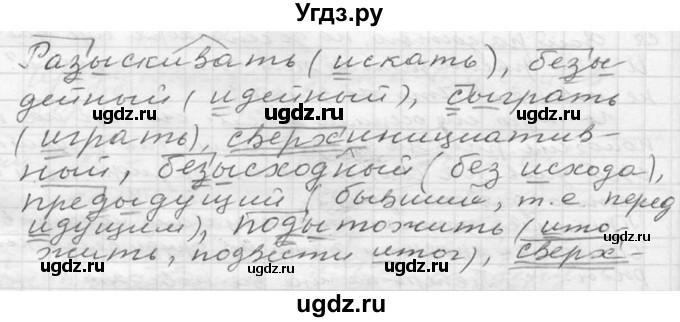 Угдз.ру
Разыскивать (искать), безы-
дейный (идейный), сыграть
(играть), сверхинициатив-
ный, безысходный (без исхода),
предыдущий (бывший, т.е. перед
идущим), подытожить (ито-
жить, подвести итог), сверх-
ugdz.ru ugdz.ru
ugdz.ru
ugdz.ru ugdz.ru
ugdz.ru
ugdz.ru ugdz.ru
ugdz.ru